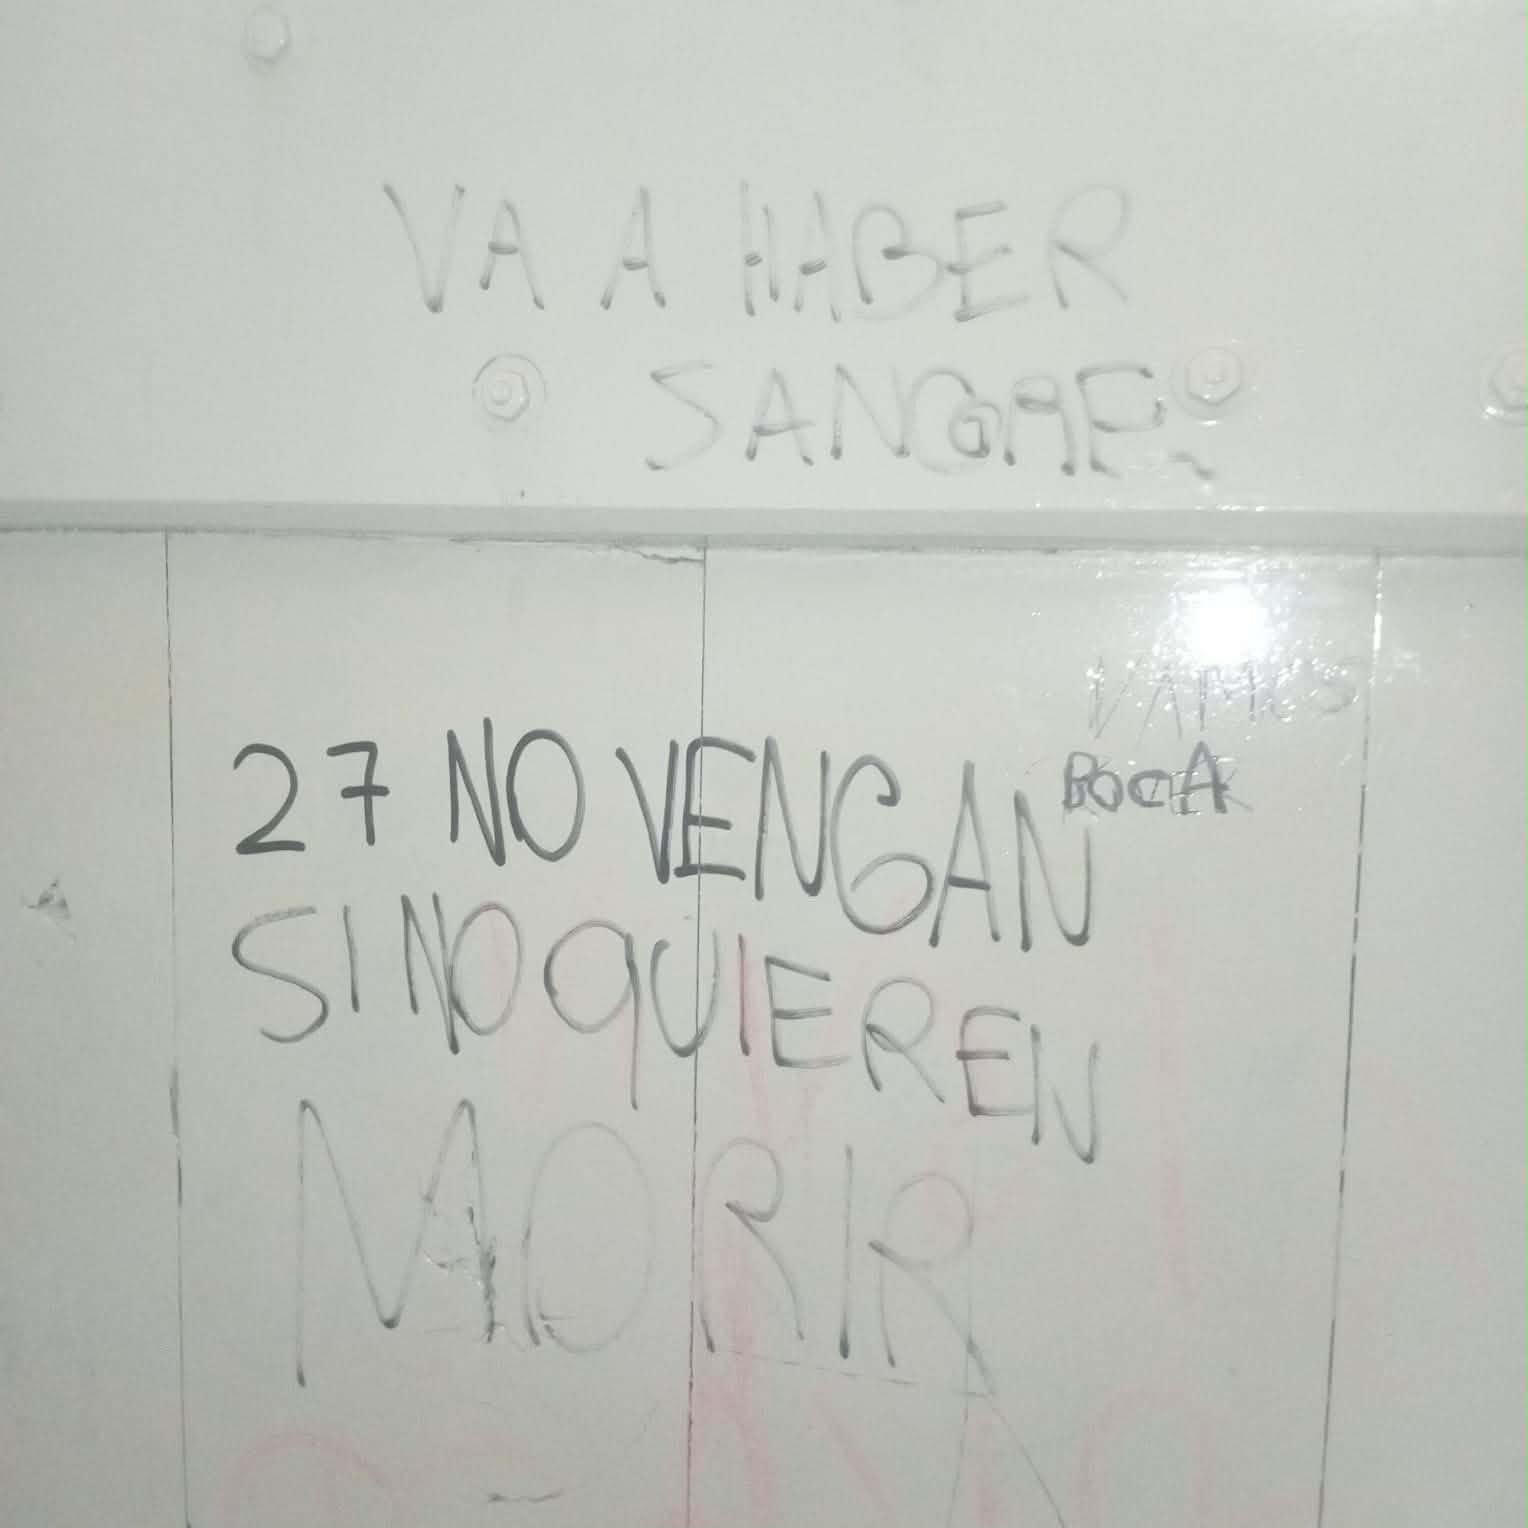 VA A HABER
SANGRE
VAMOS
BOCA
27 NO VENGAN
SI NO QUIEREN
MORIR